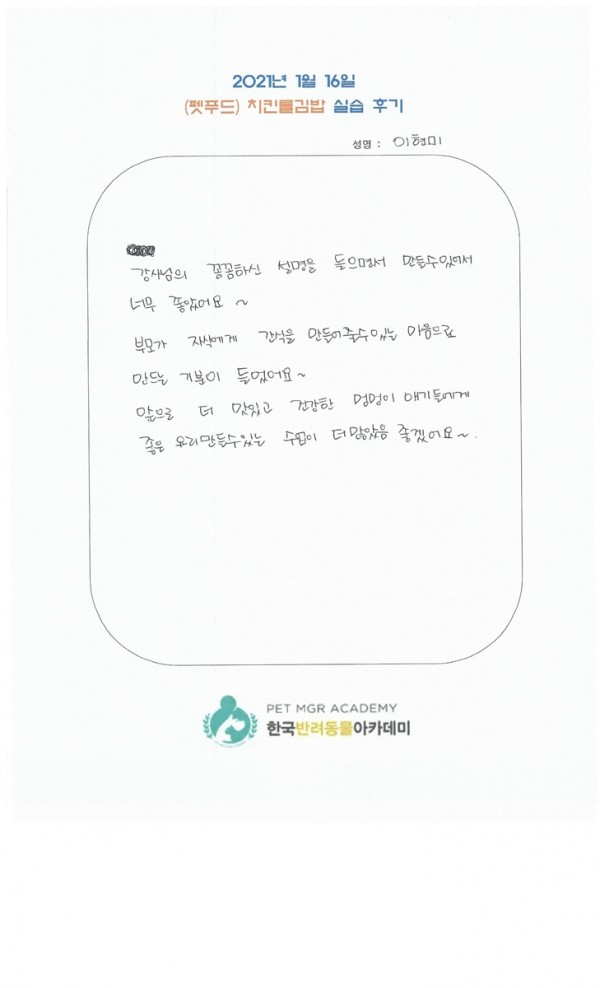 2021년 1월 16일
(펫푸드) 치킨롤김밥 실습 후기
성명 : 이현미
강사님의 꼼꼼하신 설명을 들으면서 만들수있어서
너무 좋았어요~
부모가 자식에게 간식을 만들어줄수있는 마음으로
만드는 기분이 들었어요~
앞으로 더 맛있고 건강한 멍멍이 애기들에게
좋은 요리만들수있는 수업이 더많았음 좋겠어요~.
PET MGR ACADEMY
한국반려동물아카데미